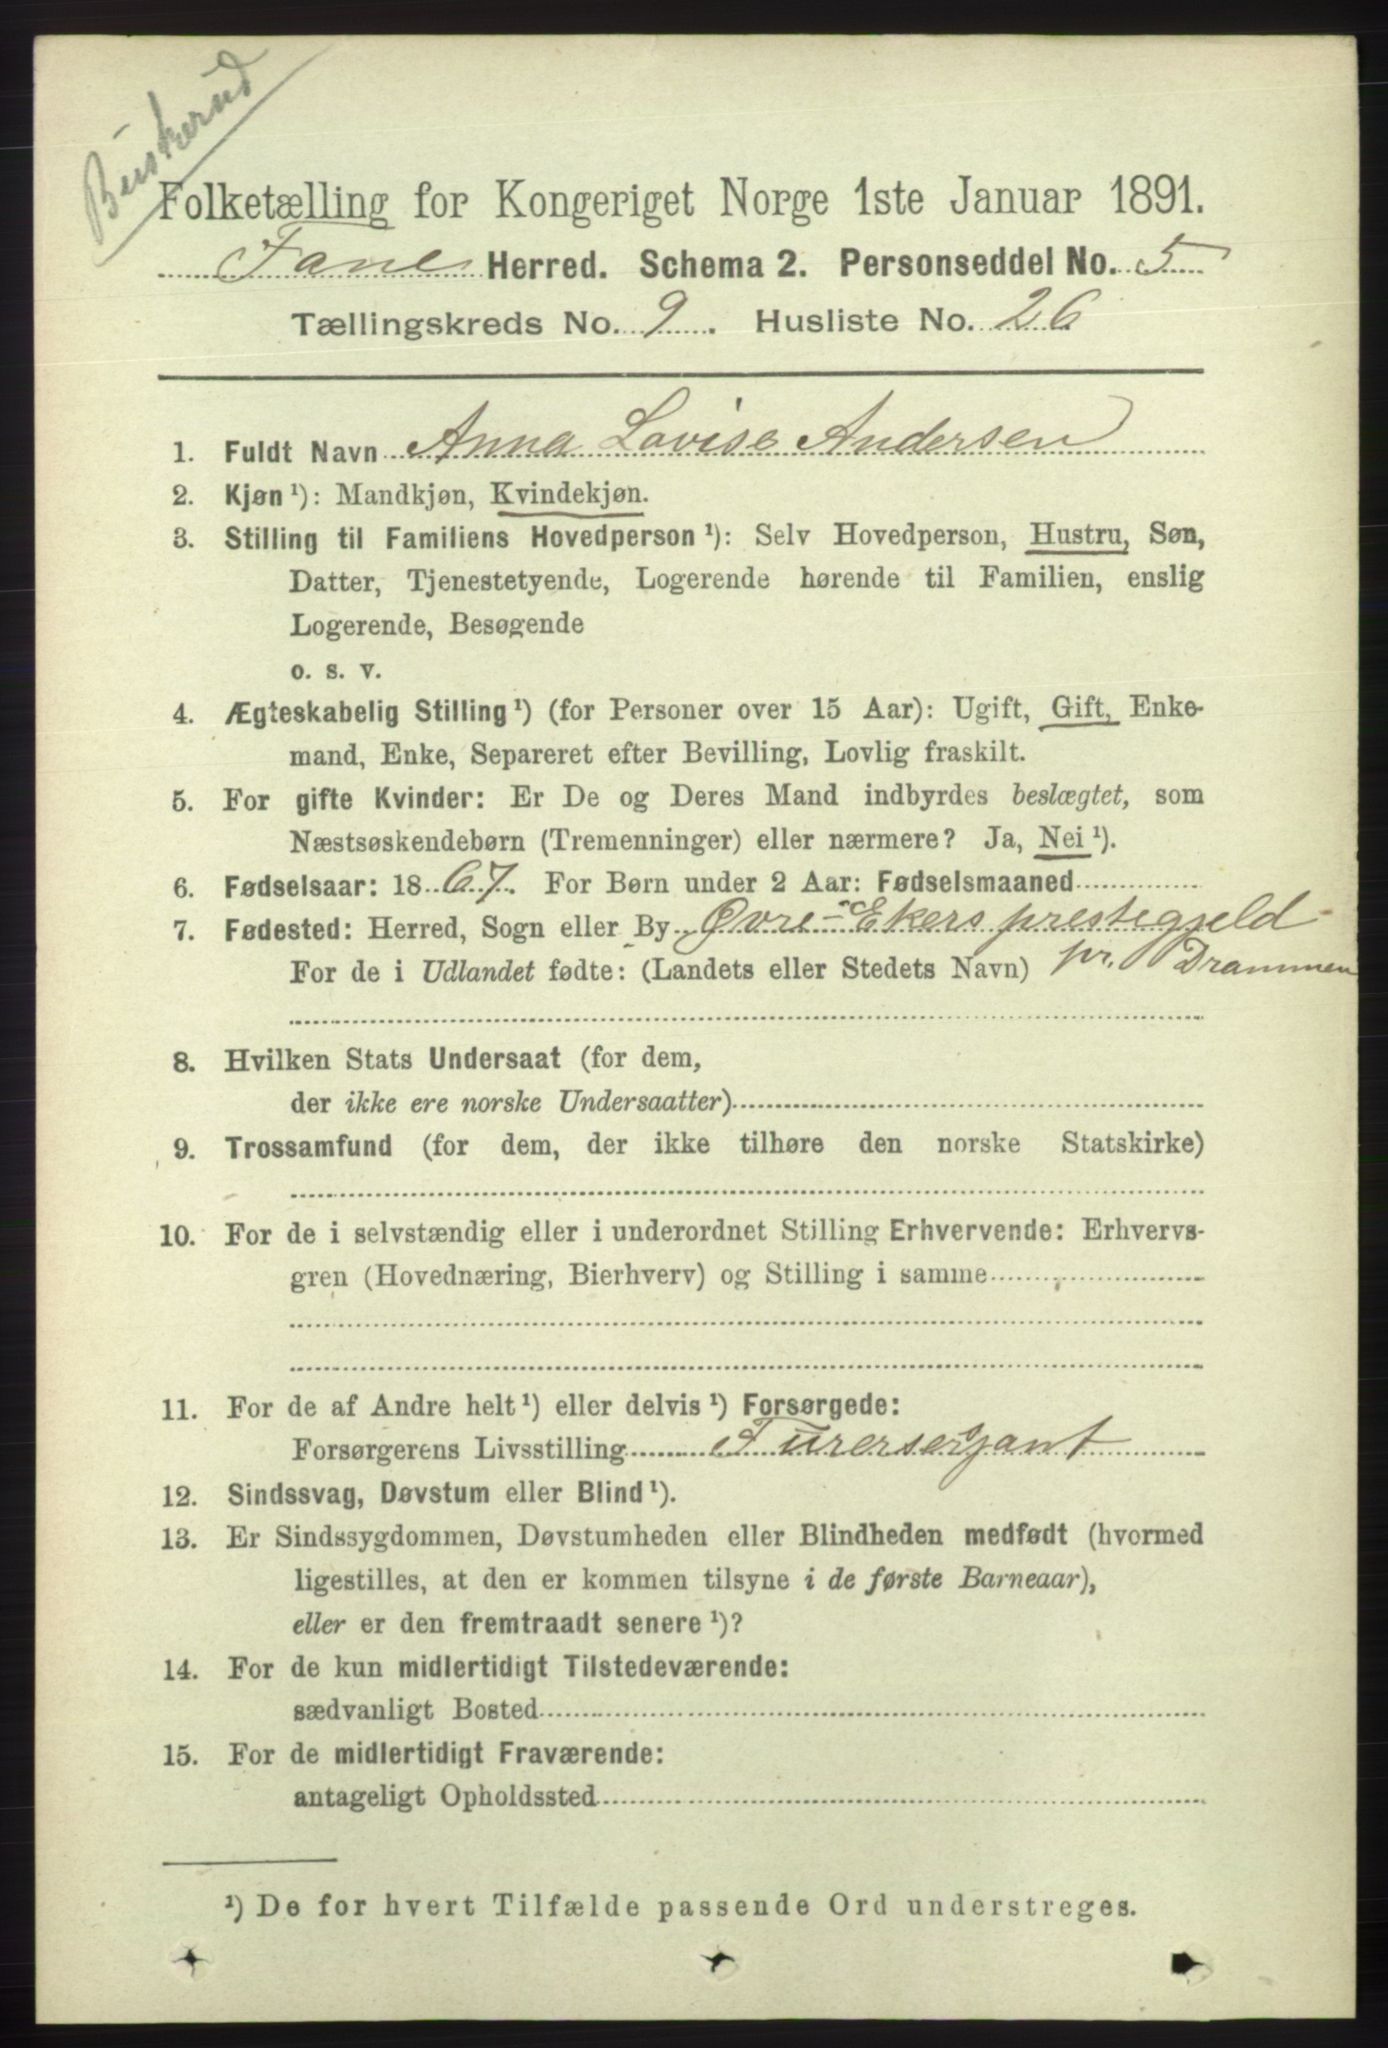 Buskerud
Folketælling for Kongeriget Norge 1ste Januar 1891.
Fane Herred. Schema 2. Personseddel No. 5
Tællingskreds No. 9. Husliste No. 26
1. Fuldt Navn Anna Lovise Andersen
2. Kjøn¹): Mandkjøn, Kvindekjøn.
3. Stilling til Familiens Hovedperson¹): Selv Hovedperson, Hustru, Søn,
Datter, Tjenestetyende, Logerende hørende til Familien, enslig
Logerende, Besøgende
o. s. v.
4. Ægteskabelig Stilling¹) (for Personer over 15 Aar): Ugift, Gift, Enke-
mand, Enke, Separeret efter Bevilling, Lovlig fraskilt.
5. For gifte Kvinder: Er De og Deres Mand indbyrdes beslægtet, som
Næstsøskendebørn (Tremenninger) eller nærmere? Ja, Nei¹).
6. Fødselsaar: 1867. For Børn under 2 Aar: Fødselsmaaned
7. Fødested: Herred, Sogn eller By Øvre-Ekers prestegjeld
For de i Udlandet fødte: (Landets eller Stedets Navn) pr. Drammen
8. Hvilken Stats Undersaat (for dem,
der ikke ere norske Undersaatter)
9. Trossamfund (for dem, der ikke tilhøre den norske Statskirke)
10. For de i selvstændig eller i underordnet Stilling Erhvervende: Erhvervs-
gren (Hovednæring, Bierhverv) og Stilling i samme
11. For de af Andre helt¹) eller delvis¹) Forsørgede:
Forsørgerens Livsstilling Furersergjant
12. Sindssvag, Døvstum eller Blind¹).
13. Er Sindssygdommen, Døvstumheden eller Blindheden medfødt (hvormed
ligestilles, at den er kommen tilsyne i de første Barneaar),
eller er den fremtraadt senere¹)?
14. For de kun midlertidigt Tilstedeværende:
sædvanligt Bosted
15. For de midlertidigt Fraværende:
antageligt Opholdssted
¹) De for hvert Tilfælde passende Ord understreges.